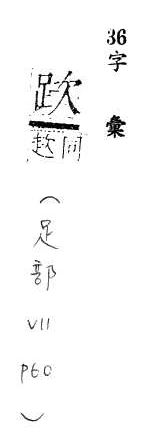 36字彙
同趑
(足部 VII P60)